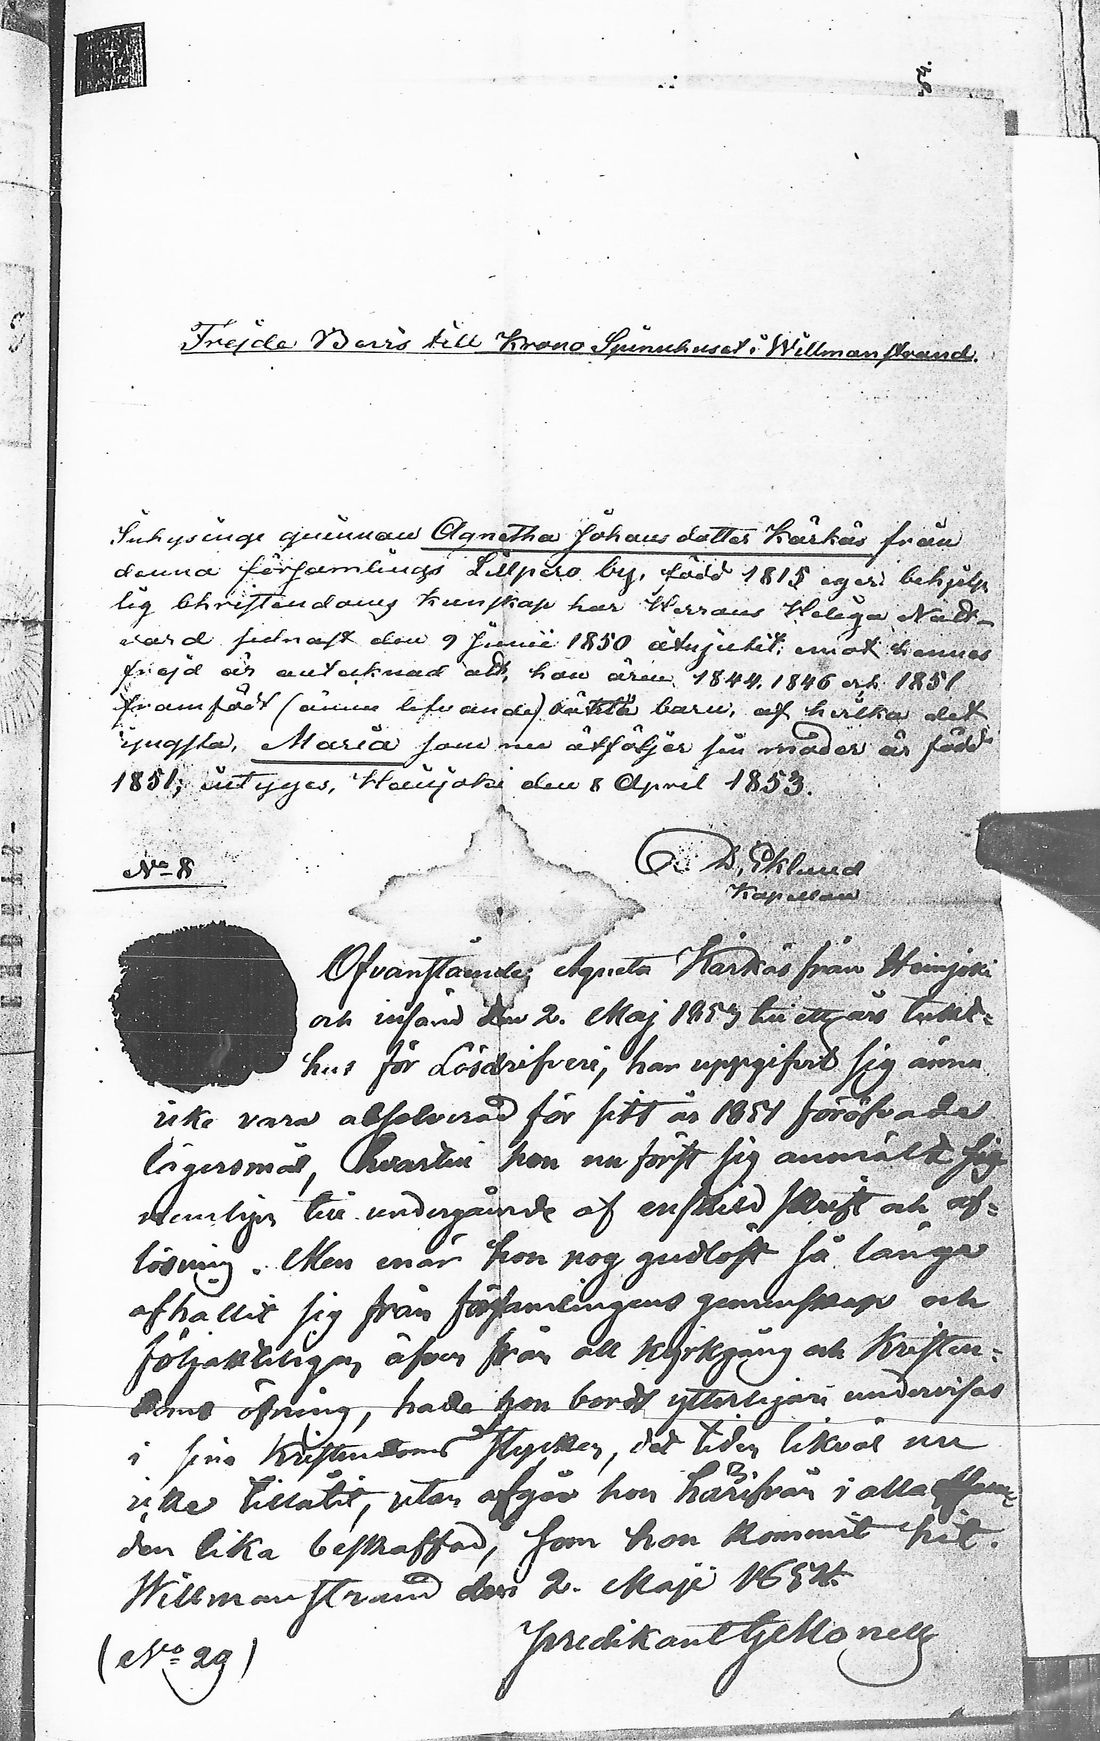 Frejde Bevis till Krono Spinnhuset i Willmanstrand.
Inhysinge qvinnan Agnetha Johans dotter Kärkäs från
denna församlings Lillpero by, född 1815 eger behjelp
lig Christendoms kunskap har Herrans Heliga Natt-
vard sednast den 9 Junii 1850 åtnjutit; emot hennes
frejd är antecknad att, hon åren 1844, 1846 och 1851
framfödt (ännu lefvande) oäkta barn, af hvilka det
yngsta, Maria som nu åtföljer sin moder är född
1851; intyges, Heinjoki den 8 April 1853.
No 8
D. Eklund
Kapellan
Ofvanstående Agneta Kärkäs från Heinjoki
och införd den 2. Maj 1853 till ett års tukt-
hus för Lösdrifveri, har uppgifvit sig ännu
icke vara absolverad för sitt år 1851 föröfvade
lägersmål, hvartill hon nu först sig anmält sig
nemligen till undergående af enskild skrift och af-
lösning. Men enär hon nog gudlöst så länge
afhållit sig från församlingens gemenskap och
följaktligen äfven från all kyrkgång och Kristen-
doms öfning, hade hon bordt ytterligare undervisas
i sina Kristendoms stycken, det tiden likväl nu
icke tillåtit, utan afgår hon härifrån i alla
den lika beskaffad, som hon kommit hit.
Willmanstrand den 2. Maji 1854.
Predikant
(No 29)